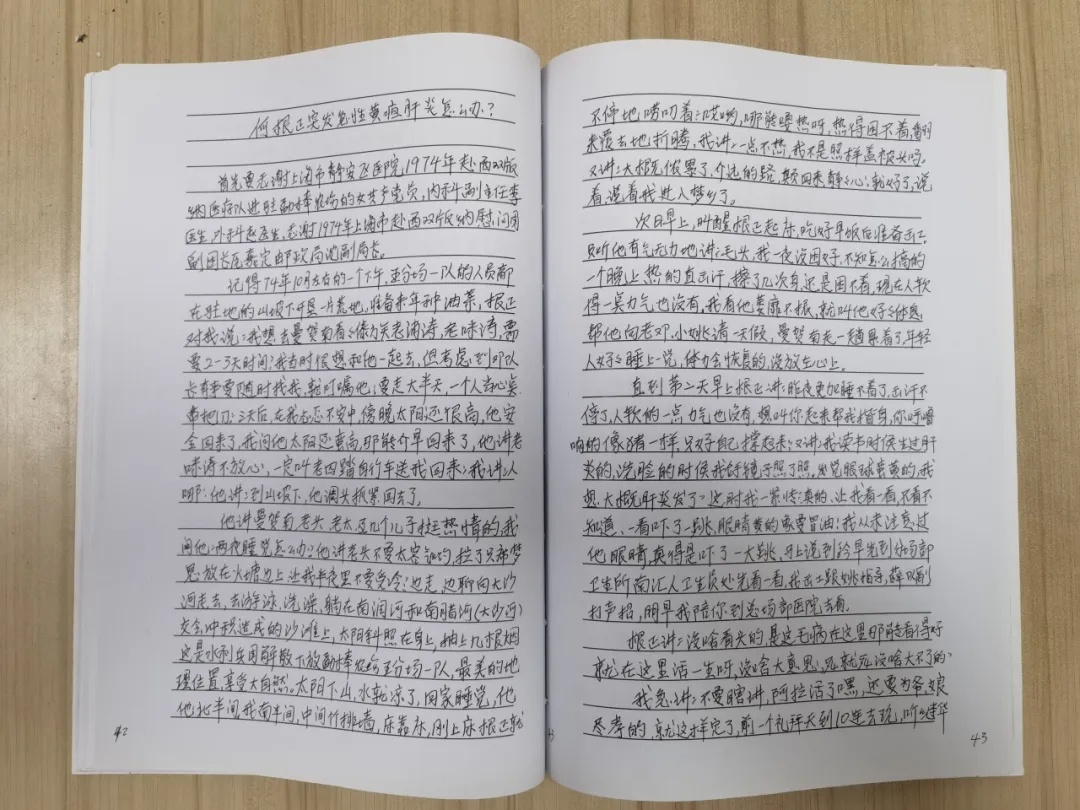 何根正突发急性黄疸肝炎怎么办？
首先要感谢上海市静安区医院，1974年赴西双版
纳医疗队进驻勐捧农场的女共产党员，内科副主任李
医生，外科赵医生，感谢1974年上海市赴西双版纳慰问团
副团长原嘉定邮政局沈副局长。
记得74年10月左右的一个下午，五分场一队的人员都
在驻地的山坡下开垦一片荒地，准备来年种油菜，根正
对我说：我想去曼贺南看看老涛，老咪涛，需
要2-3天时间？我当时很想和他一起去，但考虑到队
长有事要随时找我，就叮嘱他：要走大半天，一个人当心点
带把刀。三天后在我忐忑不安中傍晚太阳还很高，他安
全回来了，我问他太阳还蛮高，那能介早回来了，他讲老
咪涛不放心，一定叫老四踏自行车送我回来，我讲：人
哪：他讲：到山坡下，他调头抓紧回去了。
他讲曼贺南老头、老太及几个儿子挺热情的，我
问他：两夜睡觉怎么办？他讲老头不要太客气的，拉了只
放在火塘边上，让我半夜里不要受冷？边走，边聊向大沙
河走去，去游泳，洗澡，躺在南润河和南腊河(大沙河)
交会冲积造成的沙滩上，太阳斜照在身上，抽上几根烟
这是水利兵团解散下放勐捧农场五分场一队，最美的地
理位置，享受大自然。太阳下山，水就凉了，回家睡觉，他
他北半间，我南半间，中间竹排墙，床靠床，刚上床根正就
42
不停地唠叨着：哎哟，哪能嘎热呀，热得困不着，翻
来覆去地折腾，我讲：一点不热，我不是照样盖被头吗。
又讲：大概是侬累了，个远的路，赶回来静静心：就好了，说
着，说着我进入梦乡了。
次日早上，叫醒根正起床，吃好早饭后准备出工，
只听他有气无力地讲：毛头，我一夜没困好，不知怎么搞的
一个晚上热的直出汗，擦了几次身，还是困不着，现在人软
得一点力气也没有，我看他萎靡不振，就叫他好好休息
帮他向老邓、小姚请一天假，曼贺南走一趟累着了，年轻
人好好睡上一觉，体力会恢复的，没放在心上。
直到第二天早上根正讲：昨夜更加睡不着了，出汗不
停了，人软的一点力气也没有，想叫你起来帮我揩身，你呼噜
响的像猪一样，只好自己撑起来；又讲：我读书时候生过肝
炎的，洗脸的时候我对镜子照了照，发觉眼球黄黄的，我
想大概肝炎发了？这时我一紧张：真的，让我看一看，不看不
知道、一看吓了一跳，眼睛黄的像要冒油！我从来注意过
他眼睛，真得是吓了一大跳，马上说：到今早先到分场部
卫生所南汇人卫生员处先看一看，我出工跟姚指导，薛队副
打声招，明早我陪你到总场部医院去看。
根正讲：没啥看头的，是这毛病在这里哪能看得好
就在这里活一生呀，没啥大意思，死就死没啥大不了的。
我急讲：不要瞎讲，阿拉活了嘿，还要为爷娘
尽孝的，就这样定了，前一个礼拜天到10连去玩，听建华
43